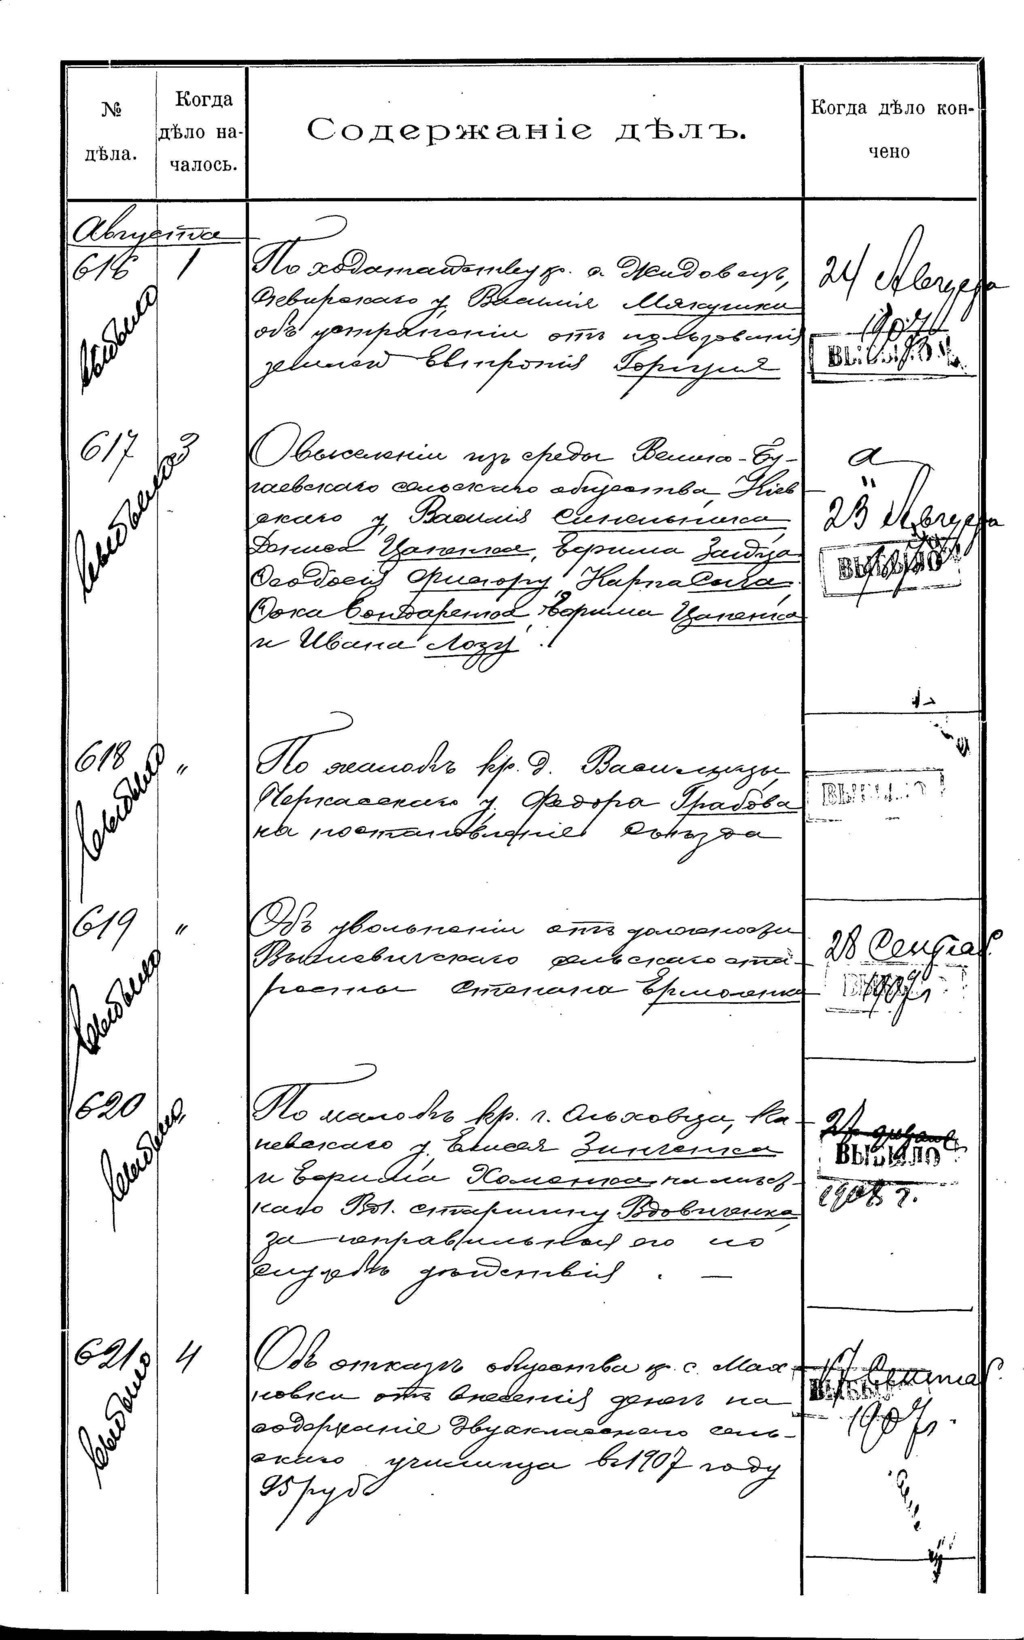 №
дѣла.
Когда
дѣло на-
чалось.
Содержаніе дѣлъ.
Когда дѣло кон-
чено
Августа
616
1
По ходатайству кр. с. Жидовецъ,
Сквирскаго у. Василія Мякушка
объ устраненіи отъ пользованія
землей Евфронія
24 Августа
1907
ВЫБЫЛО
выбыло
617
3
О выселеніи изъ среды Велико-Бу-
гаевскаго сельскаго общества, Кіев
скаго у. Василія Синельника,
Дениса Цапенка, Ефрима Заяца
Феодосія Карпа
Фока Бондаренка, Ефрима Цапенка
и Ивана Лозу.
23 Августа
1907
ВЫБЫЛО
выбыло
618
"
По жалобѣ кр. д. Василицы,
Черкасскаго у. Федора Грабова
на постановленіе Съѣзда
ВЫБЫЛО
выбыло
619
"
Объ увольненіи отъ должности
сельскаго ста-
росты Степана Ермоленка
28 Сентяб.
1907 г.
выбыло
620
По жалобѣ кр. г. Ольховца, Ка-
невскаго у. Елисея Зинченка
и Ефрима Хоменка на лисов-
каго Вол. старшину Вдовиченка,
за неправильныя его по
службѣ дѣйствія. —
ВЫБЫЛО
1908 г.
выбыло
621
4
Объ отказѣ общества кр. с. Мах
новки отъ внесенія денегъ на
содержаніе двухкласснаго сель-
скаго училища въ 1907 году
95 руб
17 Сентяб.
1907 г.
выбыло